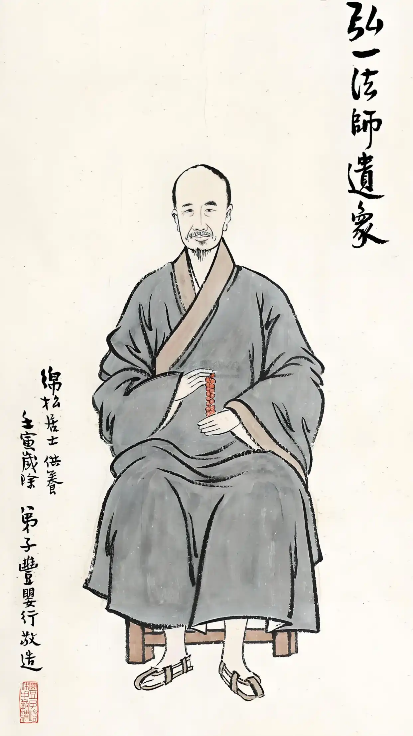 弘一法師遺象
綿松居士供養
壬寅歲除
弟子豐嬰行敬造